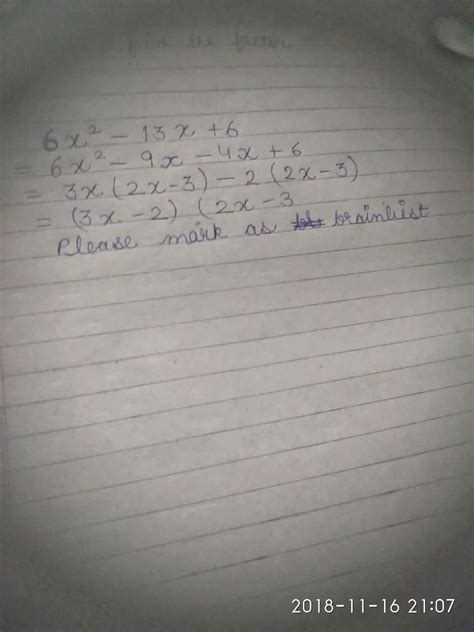 6x² - 13x + 6
= 6x² - 9x - 4x + 6
= 3x (2x-3) - 2 (2x-3)
= (3x - 2) (2x - 3
Please mark as brainliest
2018-11-16 21:07